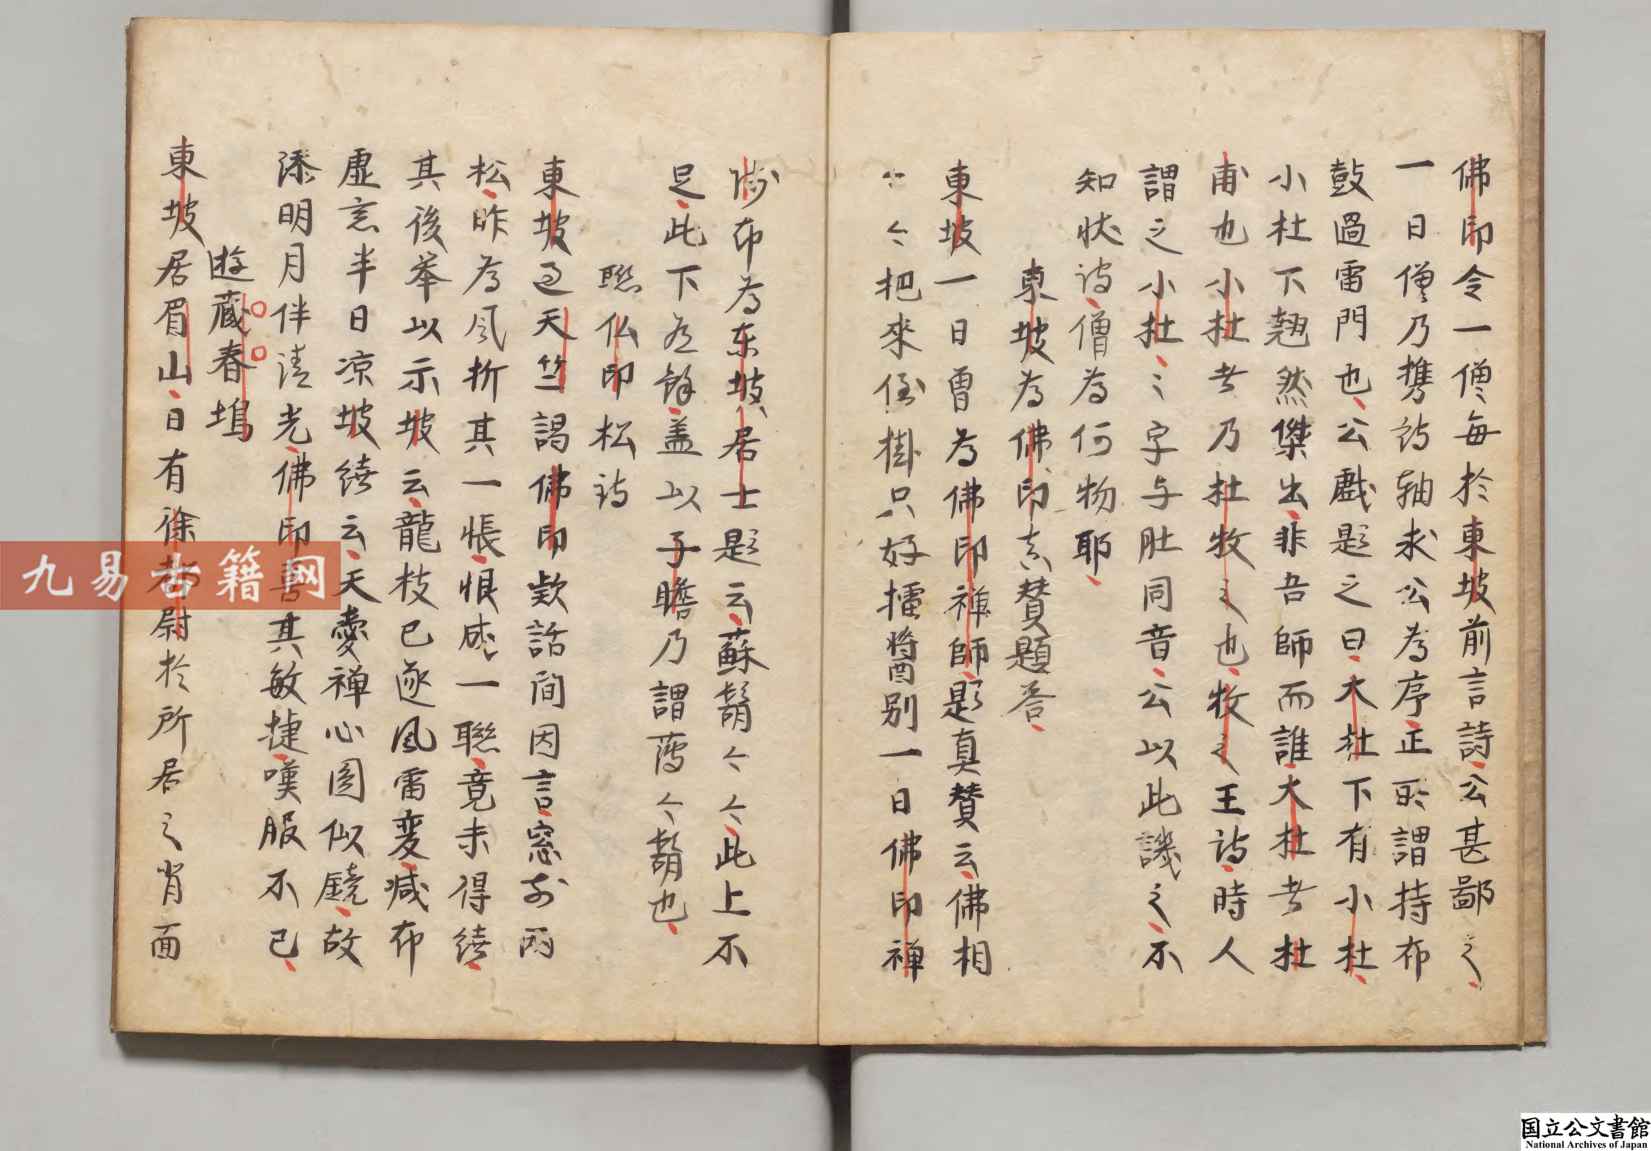 佛印令一僧每於東坡前言詩公甚鄙之
一日僧乃携詩軸求公為序正所謂持布
鼓過雷門也公戲題之曰大杜下有小杜
小杜下翹然傑出非吾師而誰大杜者杜
甫也小杜者乃杜牧之也牧之王詩時人
謂之小杜之字与肚同音公以此譏之不
知状詩僧為何物耶
東坡為佛印真賛題答
東坡一日曽為佛印禅師題真賛云佛相
々々把來倒掛只好擂醬別一日佛印禅
師亦為东坡居士題云蘇鬍々々此上不
足此下有餘盖以子瞻乃謂鬍々鬍也
聮仏印松詩
東坡過天竺謁佛印欵話間因言窓前兩
松昨為風折其一悵恨成一聮竟未得續
其後举以示坡云龍枝已逐風雷変减却
虚窓半日凉坡續云天愛禅心圎似鏡故
添明月伴清光佛印喜其敏捷嘆服不已
遊藏春塢
東坡居眉山日有徐都尉於所居之背面
九易古籍网
国立公文書館
National Archives of Japan